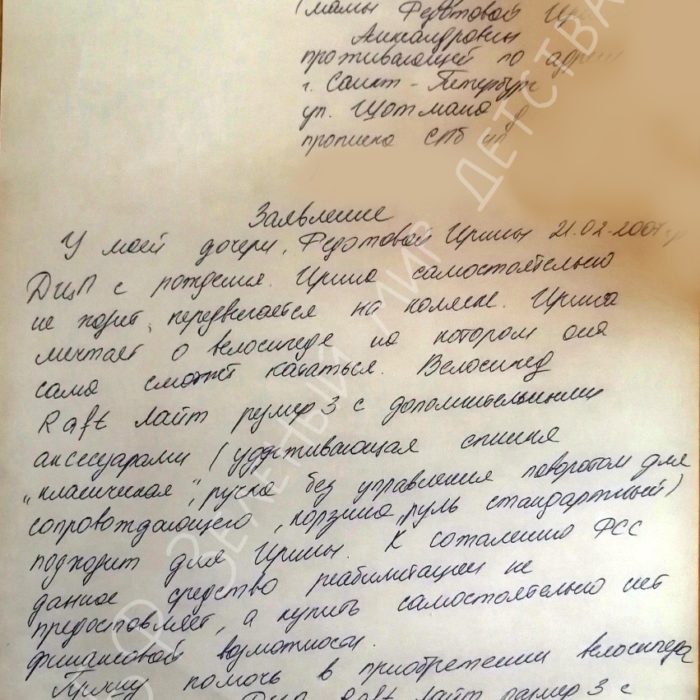 (мамы Федотовой Ири
Александровны
проживающей по адрес
г. Санкт-Петербург
ул. Шотмана
прописка СПб
Заявление
У моей дочери, Федотовой Ирины 21.02.200
ДЦП с рождения. Ирина самостоятельно
не ходит, передвигается на коляске. Ирина
мечтает о велосипеде на котором она
сама сможет кататься. Велосипед
Raft лайт размер 3 с дополнительными
аксессуарами (удерживающая спинка
"класическая", ручка без управления поворотом для
сопровождающего, корзина, руль стандартный)
подходит для Ирины. К сожалению ФСС
данное средство реабилитации не
предоставляет, а купить самостоятельно нет
финансовой возможности.
Прошу помочь в приобретении велосипеда
ДЦП Raft лайт размер 3 с
ЗЕЛЕНЫЙ МИР ДЕТСТВА